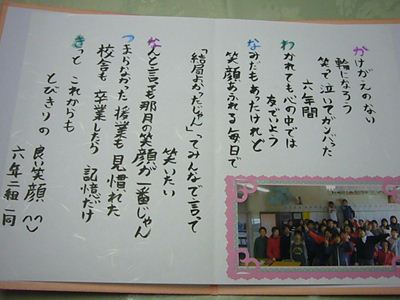 かけがえのない
輪になろう
笑って泣いてガンバった
六年間
わかれても心の中では
友でいよう
なみだもあったけれど
笑顔あふれる毎日で
「結局よかったじゃん」ってみんなで言って
笑いたい
なんと言っても那月の笑顔が一番じゃん
つまらなかった授業も見慣れた
校舎も卒業したら記憶だけ
きっとこれからも
とびきりの良い笑顔
六年二組一同